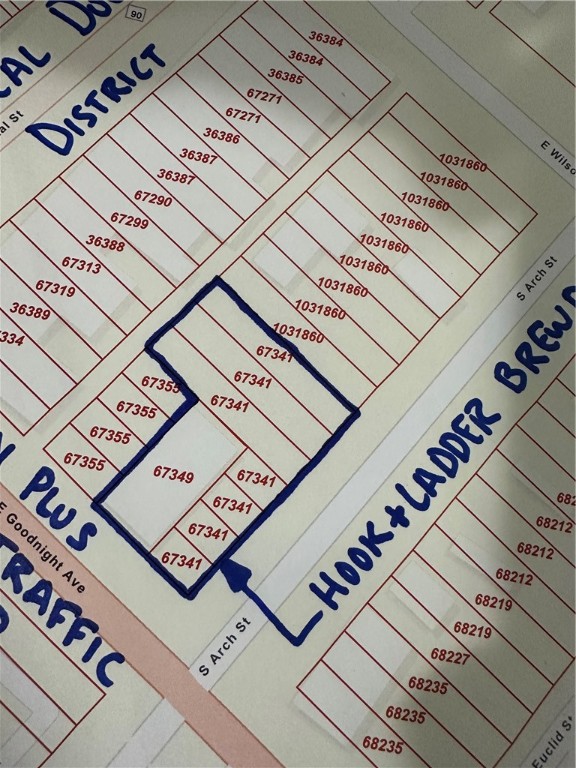 90
DISTRICT
36384
36384
36385
67271
67271
36386
36387
36387
67290
67299
36388
67313
67319
36389
E Wilso
1031860
1031860
1031860
1031860
1031860
1031860
1031860
1031860
S Arch St
67341
67341
67341
67355
67355
67355
67355
67349
67341
67341
67341
67341
HOOK & LADDER BREW
PLUS
E Goodnight Ave
TRAFFIC
S Arch St
68212
68212
68212
68219
68219
68227
68235
68235
68235
Euclid St